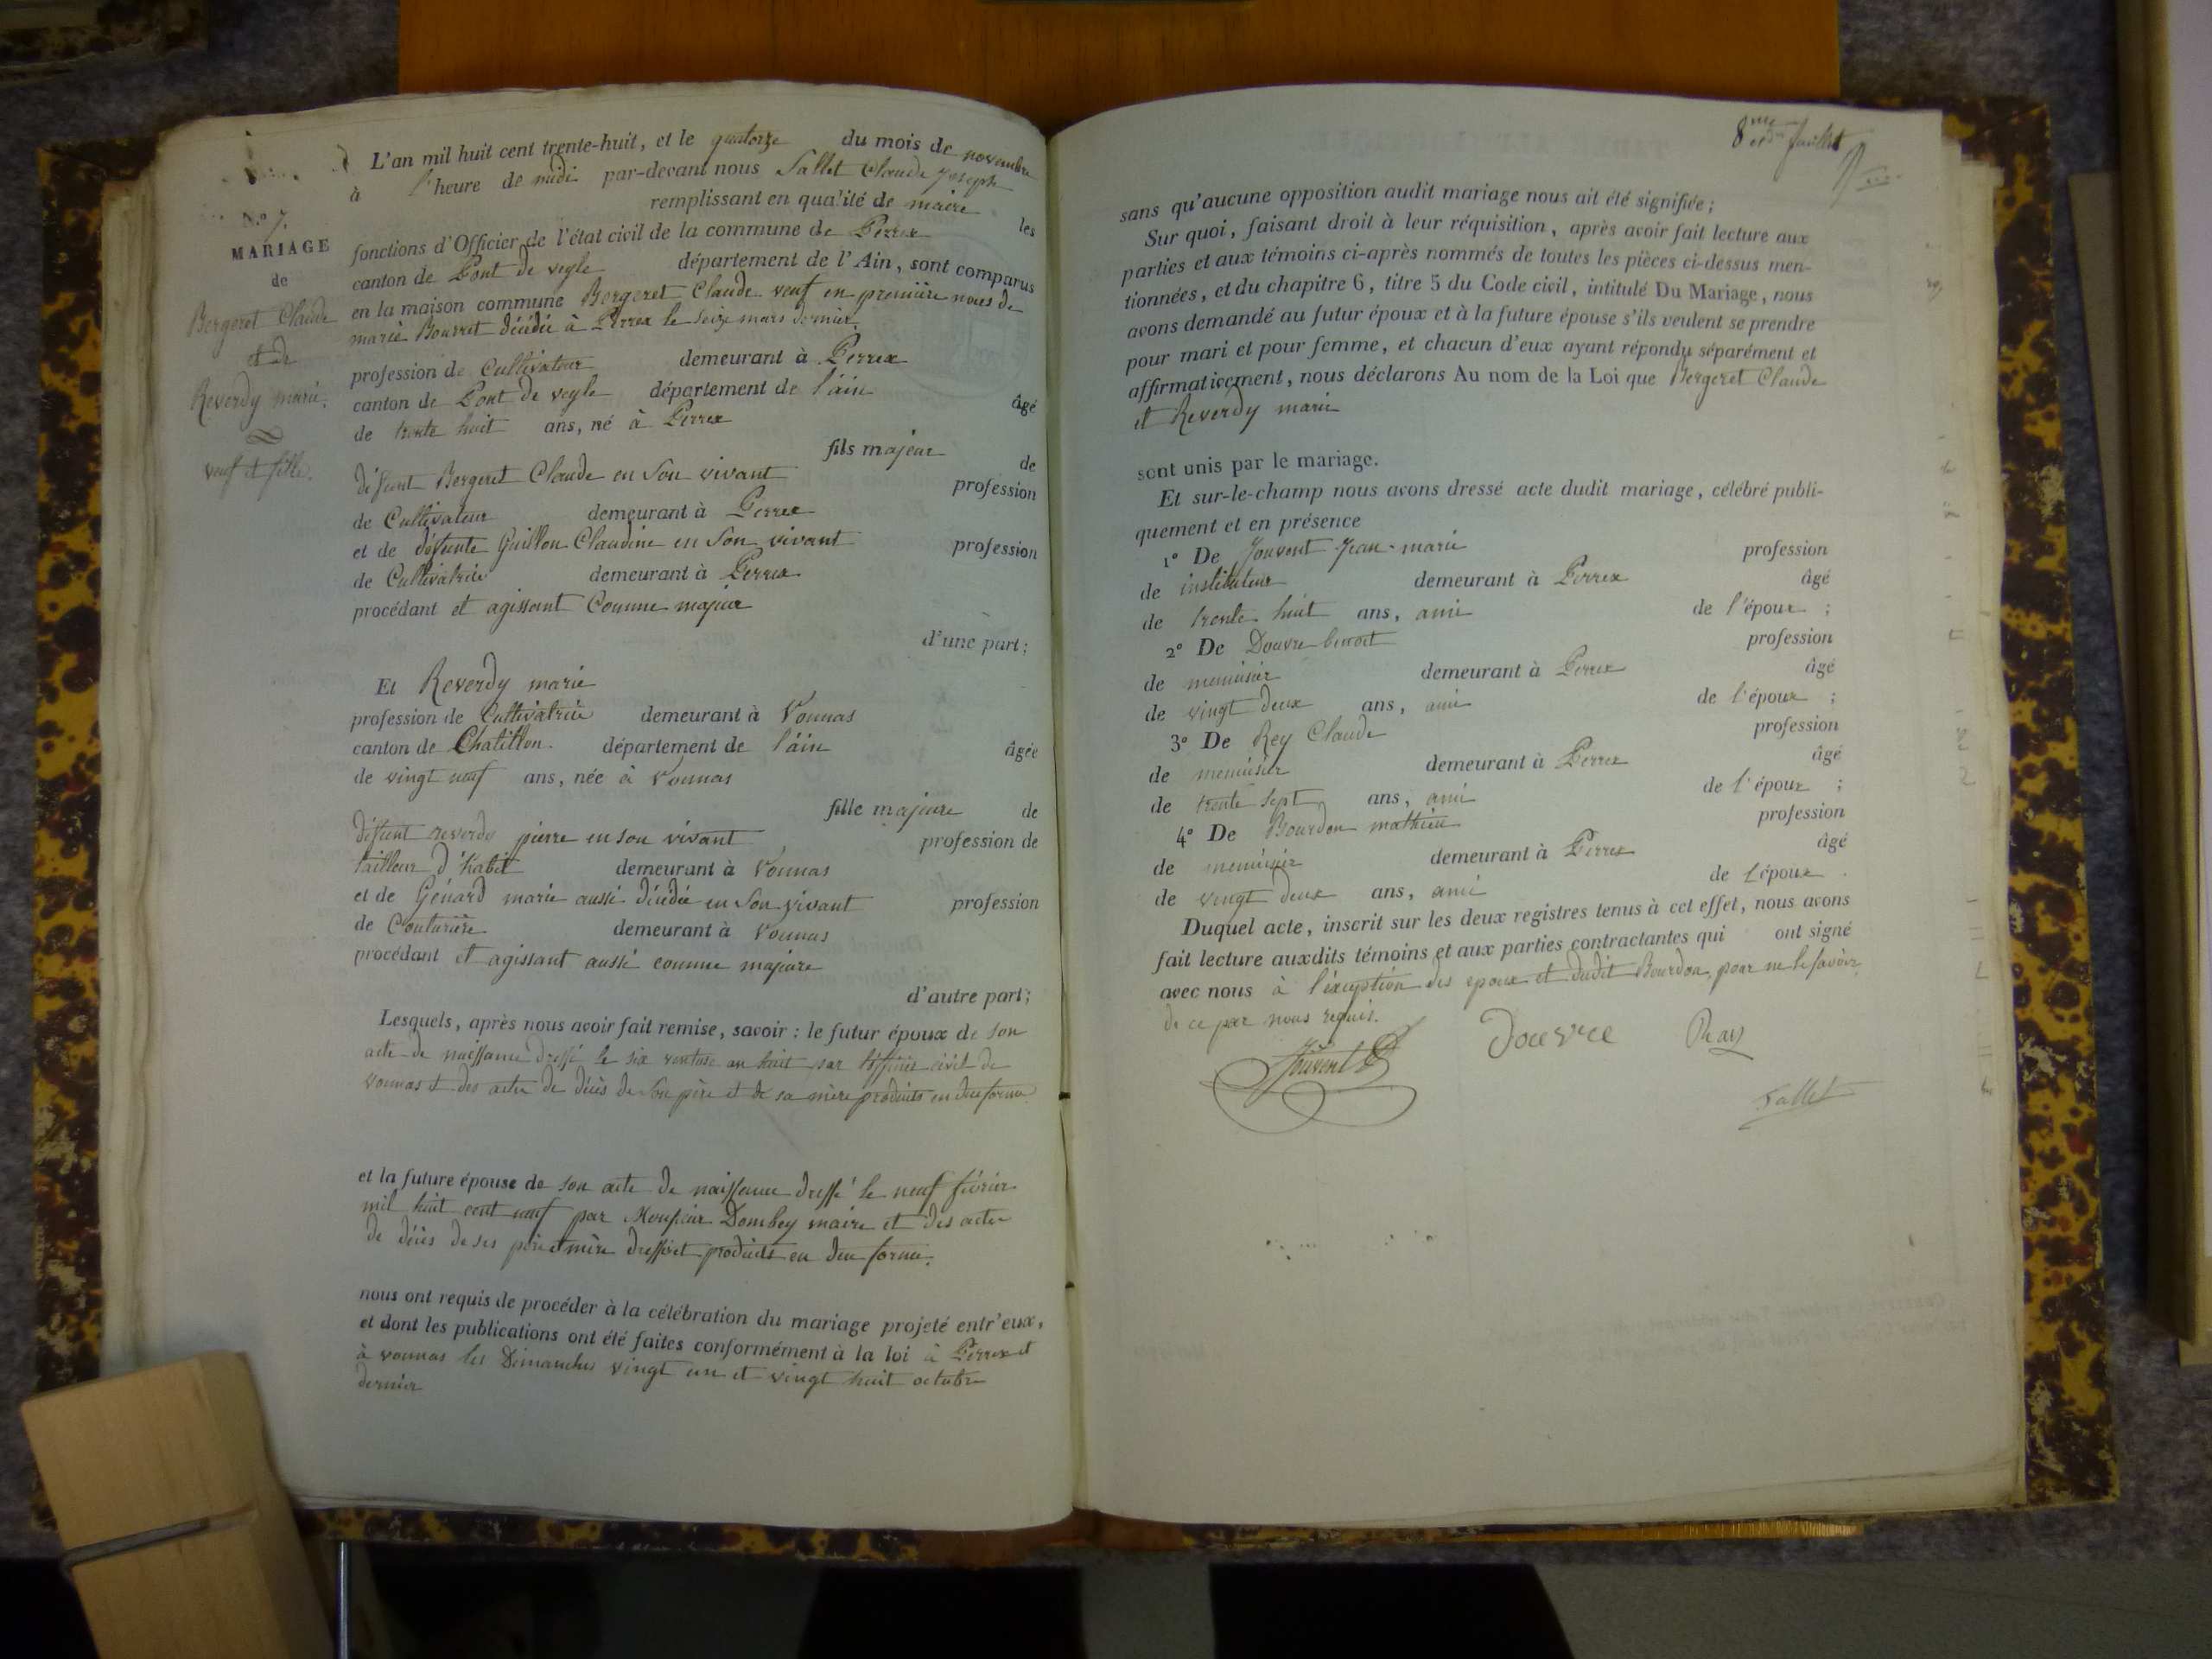 N.º 7.
MARIAGE
de
Bergeret Claude
et de
Reverdy marie.
veuf et fille.
L'an mil huit cent trente-huit, et le quatorze du mois de novembre
à l'heure de midi par-devant nous Sallet Claude Joseph
remplissant en qualité de maire les
fonctions d'Officier de l'état civil de la commune de Perrex
canton de Pont de veyle département de l'Ain, sont comparus
en la maison commune Bergeret Claude veuf en première noces de
marie Bouvret décédée à Perrex le seize mars dernier.
profession de Cultivateur demeurant à Perrex
canton de Pont de veyle département de l'ain âgé
de trente huit ans, né à Perrex
fils majeur de
défunt Bergeret Claude en son vivant profession
de Cultivateur demeurant à Perrex
et de défunte Guillon Claudine en son vivant profession
de Cultivatrice demeurant à Perrex
procédant et agissant Comme majeur
d'une part;
Et Reverdy marie
profession de Cultivatrice demeurant à Vonnas
canton de Chatillon département de l'ain âgée
de vingt neuf ans, née à Vonnas
fille majeure de
défunt reverdy pierre en son vivant profession de
tailleur d'habit demeurant à Vonnas
et de Génard marie aussi décédée en son vivant profession
de Couturière demeurant à Vonnas
procédant et agissant aussi comme majeure
d'autre part;
Lesquels, après nous avoir fait remise, savoir : le futur époux de son
acte de naissance dressé le six ventose an huit par l'officier civil de
vonnas et des actes de décès de son père et de sa mère produits en due forme
et la future épouse de son acte de naissance dressé le neuf février
mil huit cent neuf par Monsieur Dombey maire et des actes
de décès de ses père et mère dressé et produits en due forme.
nous ont requis de procéder à la célébration du mariage projeté entr'eux,
et dont les publications ont été faites conformément à la loi à Perrex et
à vonnas les Dimanches vingt un et vingt huit octobre
dernier
8me et der feuillet
sans qu'aucune opposition audit mariage nous ait été signifiée;
Sur quoi, faisant droit à leur réquisition, après avoir fait lecture aux
parties et aux témoins ci-après nommés de toutes les pièces ci-dessus men-
tionnées, et du chapitre 6, titre 5 du Code civil, intitulé Du Mariage, nous
avons demandé au futur époux et à la future épouse s'ils veulent se prendre
pour mari et pour femme, et chacun d'eux ayant répondu séparément et
affirmativement, nous déclarons Au nom de la Loi que Bergeret Claude
et Reverdy marie
sont unis par le mariage.
Et sur-le-champ nous avons dressé acte dudit mariage, célébré publi-
quement et en présence
1º De Jouvent Jean-marie profession
de instituteur demeurant à Perrex âgé
de trente huit ans, ami de l'époux ;
2º De Douvre benoit profession
de menuisier demeurant à Perrex âgé
de vingt deux ans, ami de l'époux ;
3º De Rey Claude profession
de menuisier demeurant à Perrex âgé
de trente sept ans, ami de l'époux ;
4º De Bourdon mathieu profession
de menuisier demeurant à Perrex âgé
de vingt deux ans, ami de l'époux .
Duquel acte, inscrit sur les deux registres tenus à cet effet, nous avons
fait lecture auxdits témoins et aux parties contractantes qui ont signé
avec nous à l'exception des epoux et dudit Bourdon, pour ne le savoir
de ce par nous requis.
Jouvent Douvre Ray
Sallet